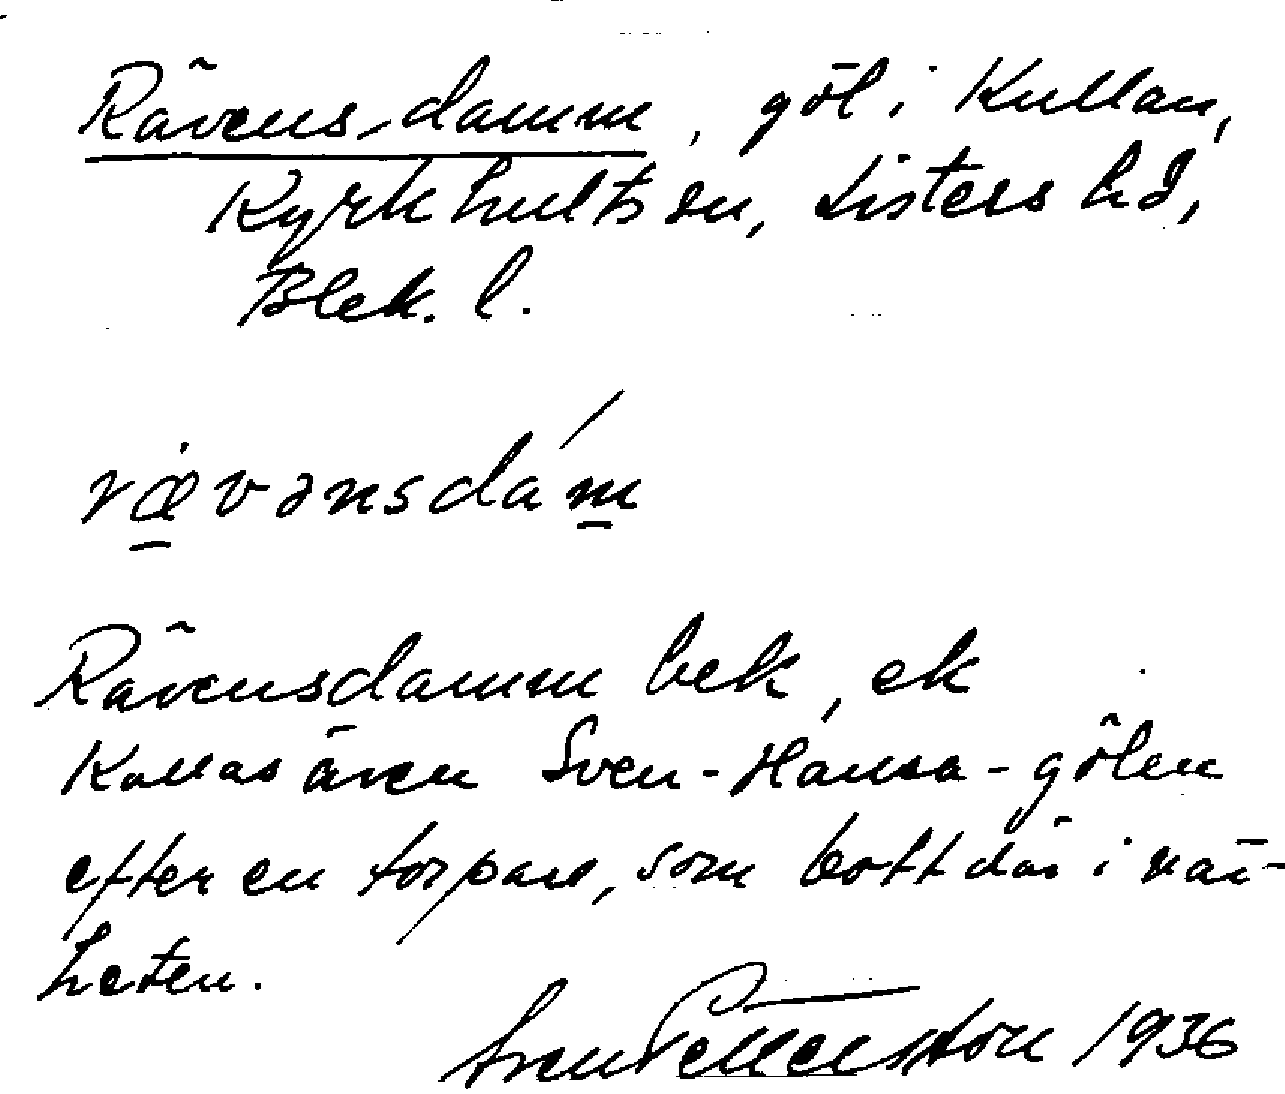 Rävens damm, göl i Kullan,
Kyrkhults sn, Listers hd,
Blek. l.
rævənsdám
Rävensdamm bek, ek
Kallas även Sven-Hansa-gölen
efter en torpare, som bott där i när-
heten.
Sven Pettersson 1936